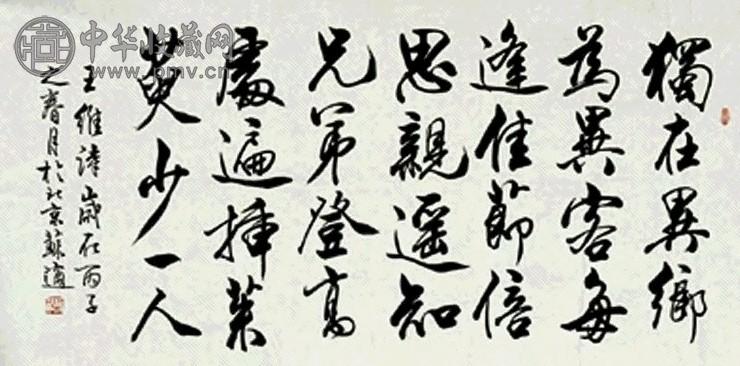 獨在異鄉
為異客每
逢佳節倍
思親遥知
兄弟登高
處遍插茱
萸少一人
王維詩歲在丙子
之春月於北京蘇適
中华收藏网
www.pmv.cn